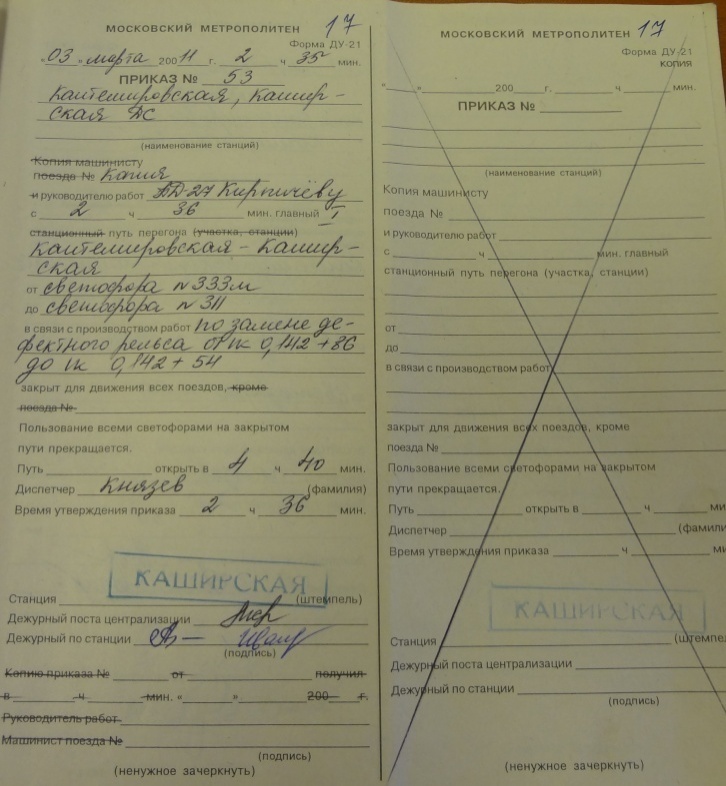 МОСКОВСКИЙ МЕТРОПОЛИТЕН 17
Форма ДУ-21
"03" марта 200 11 г. 2 ч 35 мин.
ПРИКАЗ № 53
Кантемировская, Кашир-
ская ДС
(наименование станций)
Копия машинисту
поезда № Копия
и руководителю работ ПД-27 Кирпичёву
с 2 ч 36 мин. главный I
станционный путь перегона (участка, станции)
Кантемировская - Кашир-
ская
от светофора №333м
до светофора №311
в связи с производством работ по замене де-
фектного рельса от пк 0,142+86
до пк 0,142+54
закрыт для движения всех поездов, кроме
поезда №
Пользование всеми светофорами на закрытом
пути прекращается.
Путь открыть в 4 ч 40 мин.
Диспетчер Князев (фамилия)
Время утверждения приказа 2 ч 36 мин.
КАШИРСКАЯ
Станция (штемпель)
Дежурный поста централизации
Дежурный по станции
(подпись)
Копию приказа № от получил
в ч мин. " " 200 г.
Руководитель работ
Машинист поезда №
(подпись)
(ненужное зачеркнуть)
МОСКОВСКИЙ МЕТРОПОЛИТЕН 17
Форма ДУ-21
КОПИЯ
" " 200 г. ч мин.
ПРИКАЗ №
(наименование станций)
Копия машинисту
поезда №
и руководителю работ
с ч мин. главный
станционный путь перегона (участка, станции)
от
до
в связи с производством работ
закрыт для движения всех поездов, кроме
поезда №
Пользование всеми светофорами на закрытом
пути прекращается.
Путь открыть в ч ми
Диспетчер (фамили
Время утверждения приказа ч ми
КАШИРСКАЯ
Станция (штемпел
Дежурный поста централизации
Дежурный по станции
(подпись)
(ненужное зачеркнуть)